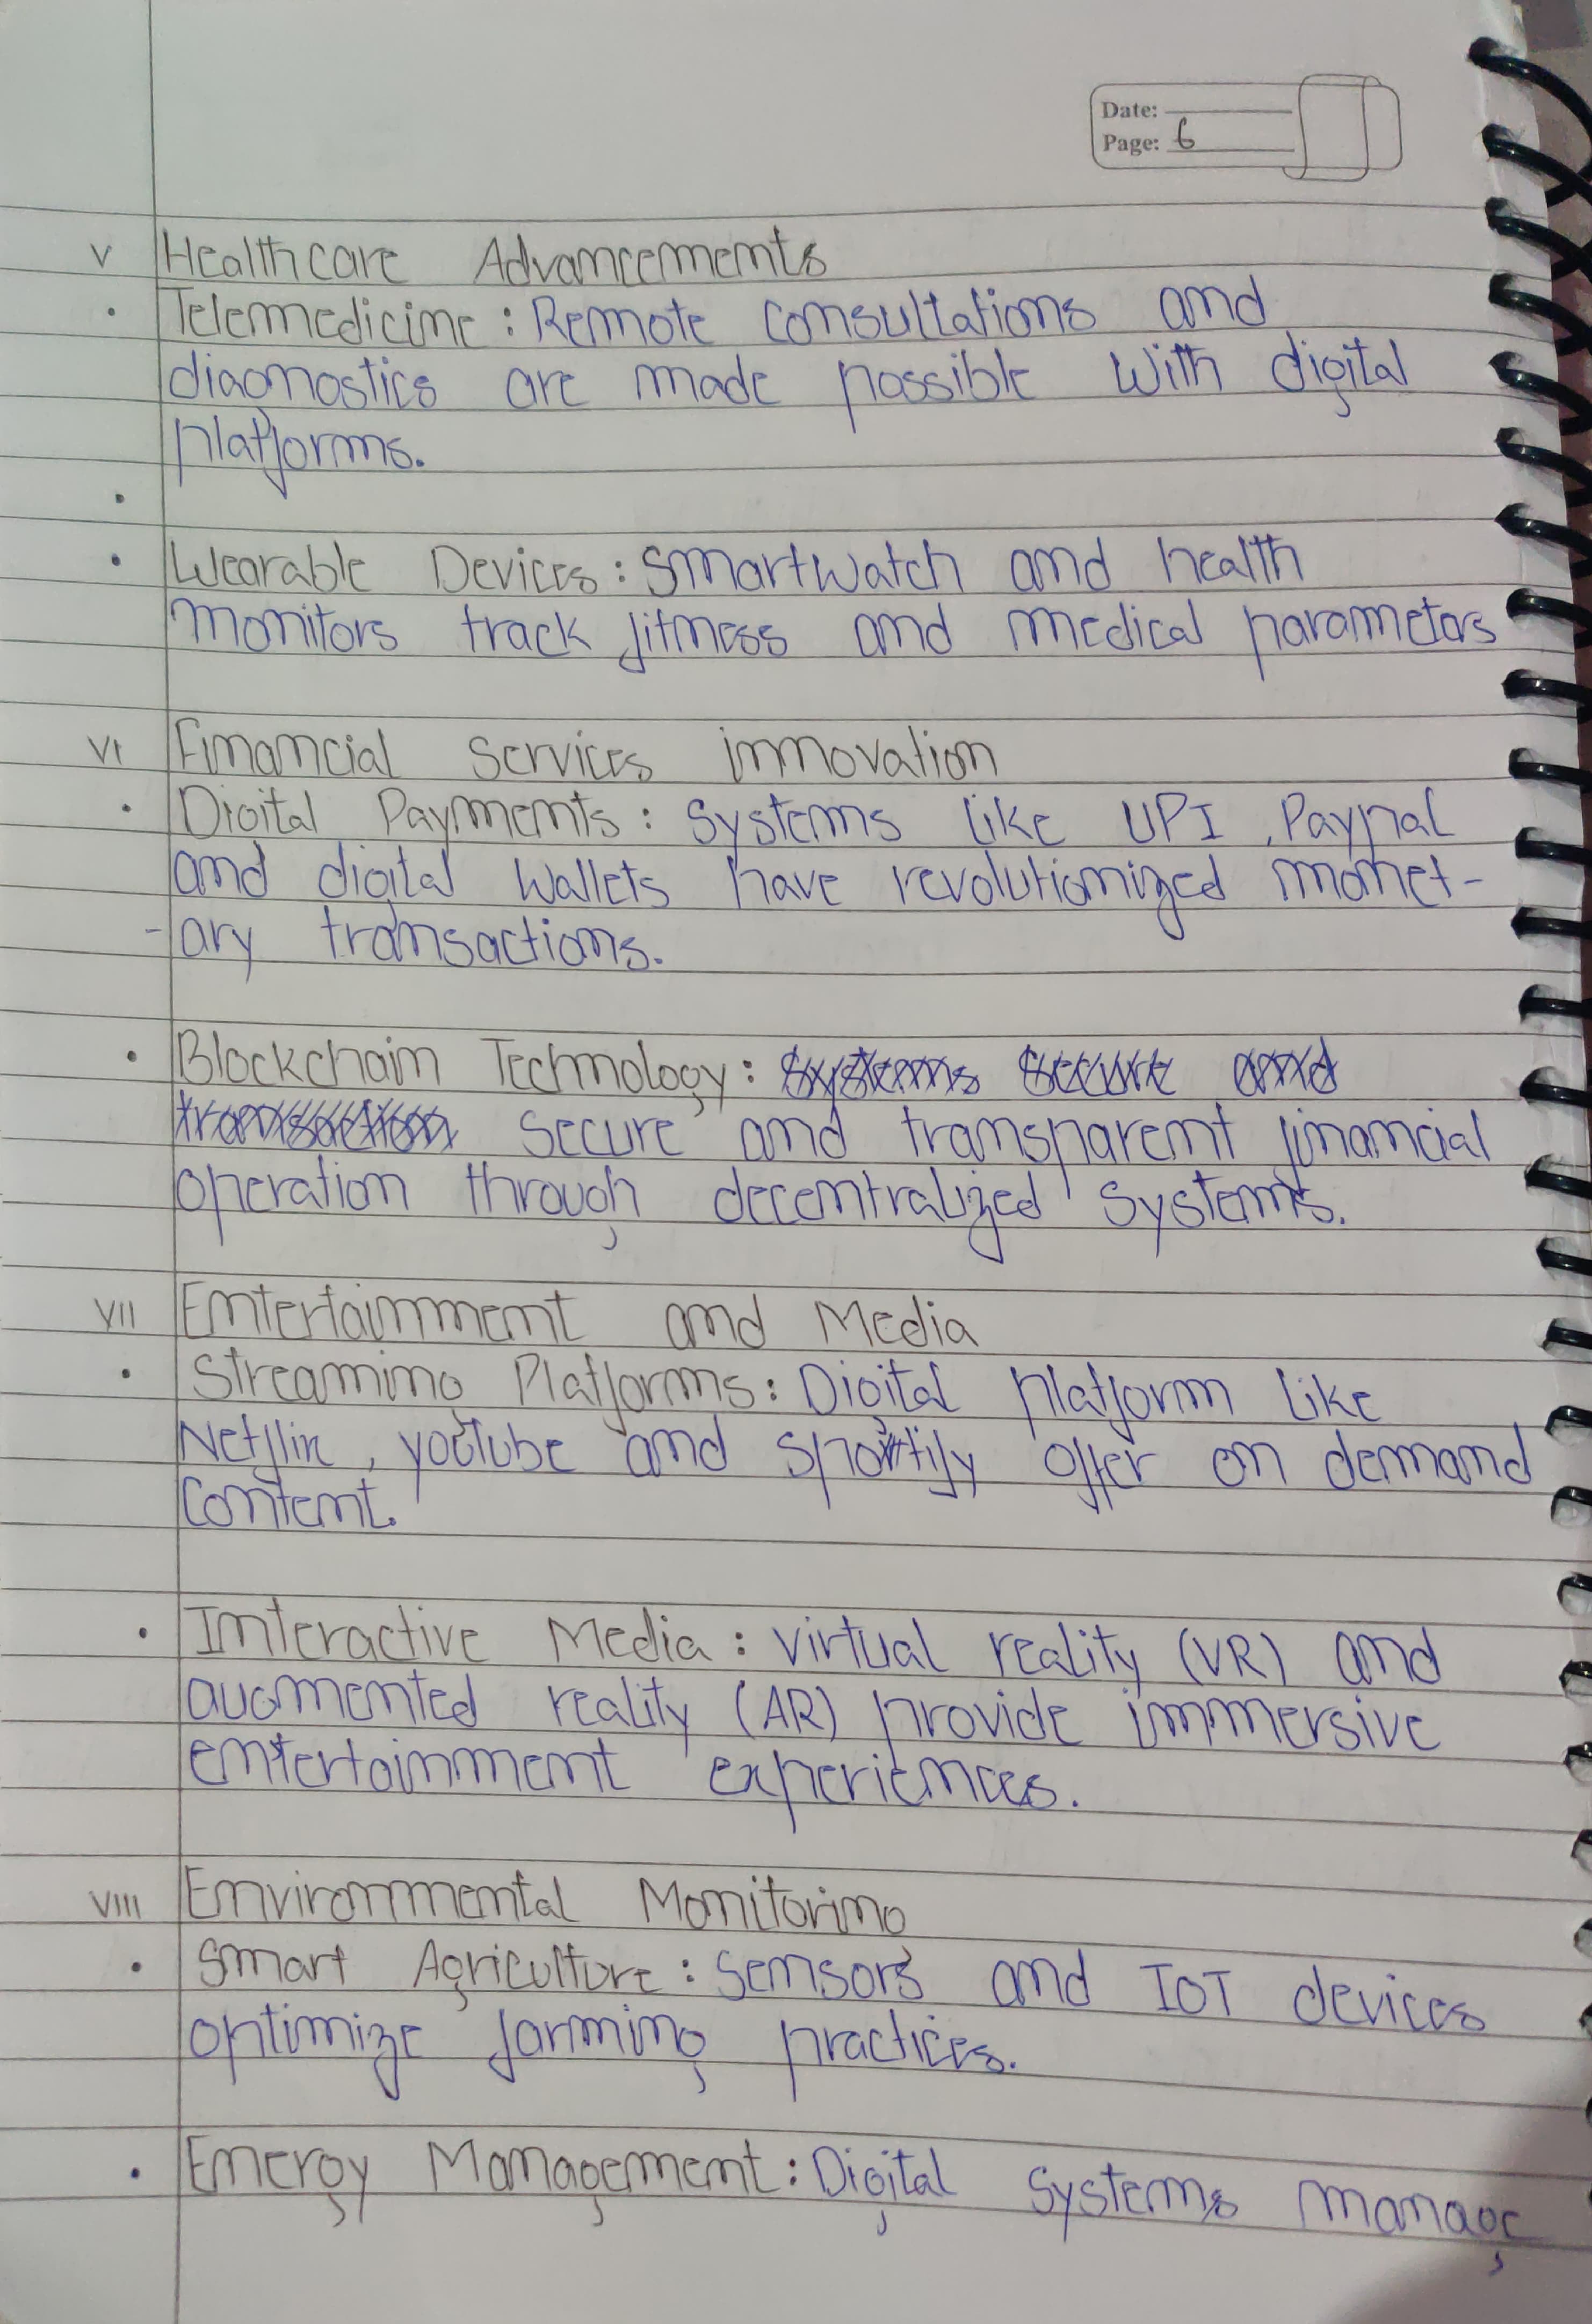 Date:
Page: 6
V Healthcare Advancements
• Telemedicine: Remote consultations and
diagnostics are made possible with digital
platforms.
•
• Wearable Devices: Smartwatch and health
monitors track fitness and medical parameters
VI Financial Services innovation
• Digital Payments: Systems like UPI, Paypal
and digital wallets have revolutionized monet-
-ary transactions.
• Blockchain Technology: Systems secure and
transaction secure and transparent financial
operation through decentralized systems.
VII Entertainment and Media
• Streaming Platforms: Digital platform like
Netflix, youtube and spotify offer on demand
content.
• Interactive Media: Virtual reality (VR) and
augmented reality (AR) provide immersive
entertainment experiences.
VIII Environmental Monitoring
• Smart Agriculture: Sensors and IOT devices
optimize farming practices.
• Energy Management: Digital Systems manage